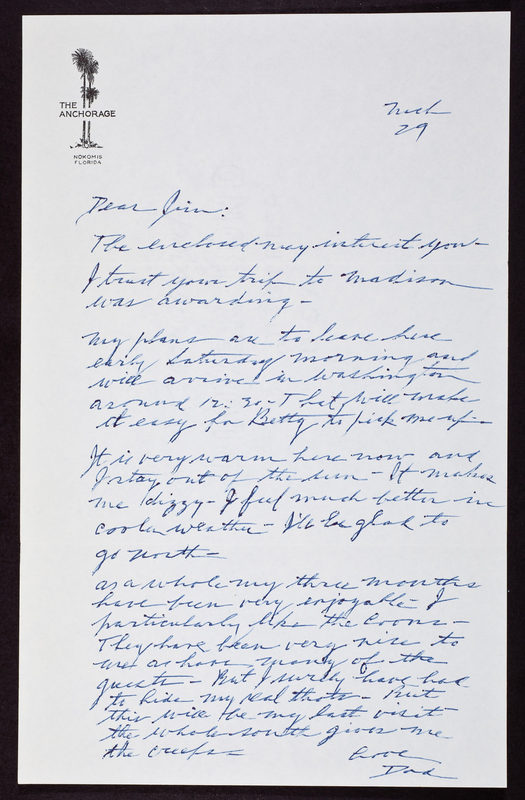 THE
ANCHORAGE
NOKOMIS
FLORIDA
Mch
29
Dear Jim:
The enclosed may interest you -
I trust your trip to Madison
was awarding -
My plans are to leave here
early Saturday morning and
will arrive in Washington
around 12:30 - That will make
it easy for Betty to pick me up -
It is very warm here now and
I stay out of the sun - It makes
me dizzy - I feel much better in
cooler weather - I'll be glad to
go north -
As a whole my three months
have been very enjoyable - I
particularly like the Coons -
They have been very nice to
me as have many of the
guests - But I surely have had
to hide my real thots - But
this will be my last visit
the whole south gives me
the creeps -
Love
Dad